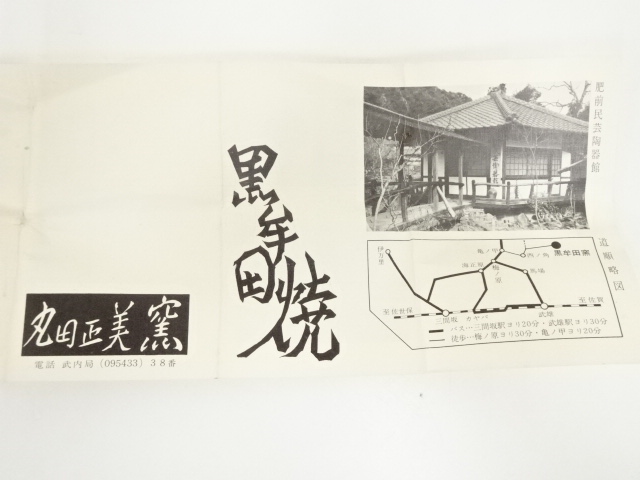 肥前民芸陶器館
黒牟田焼
道順略図
伊万里
亀ノ甲
西ノ角
黒牟田窯
梅ノ原
馬場
至佐世保
三間坂
カヤバ
武雄
至佐賀
バス…三間坂駅ヨリ20分・武雄駅ヨリ30分
徒歩…梅ノ原ヨリ30分・亀ノ甲ヨリ20分
丸田正美窯
電話 武内局 (095433) 38番